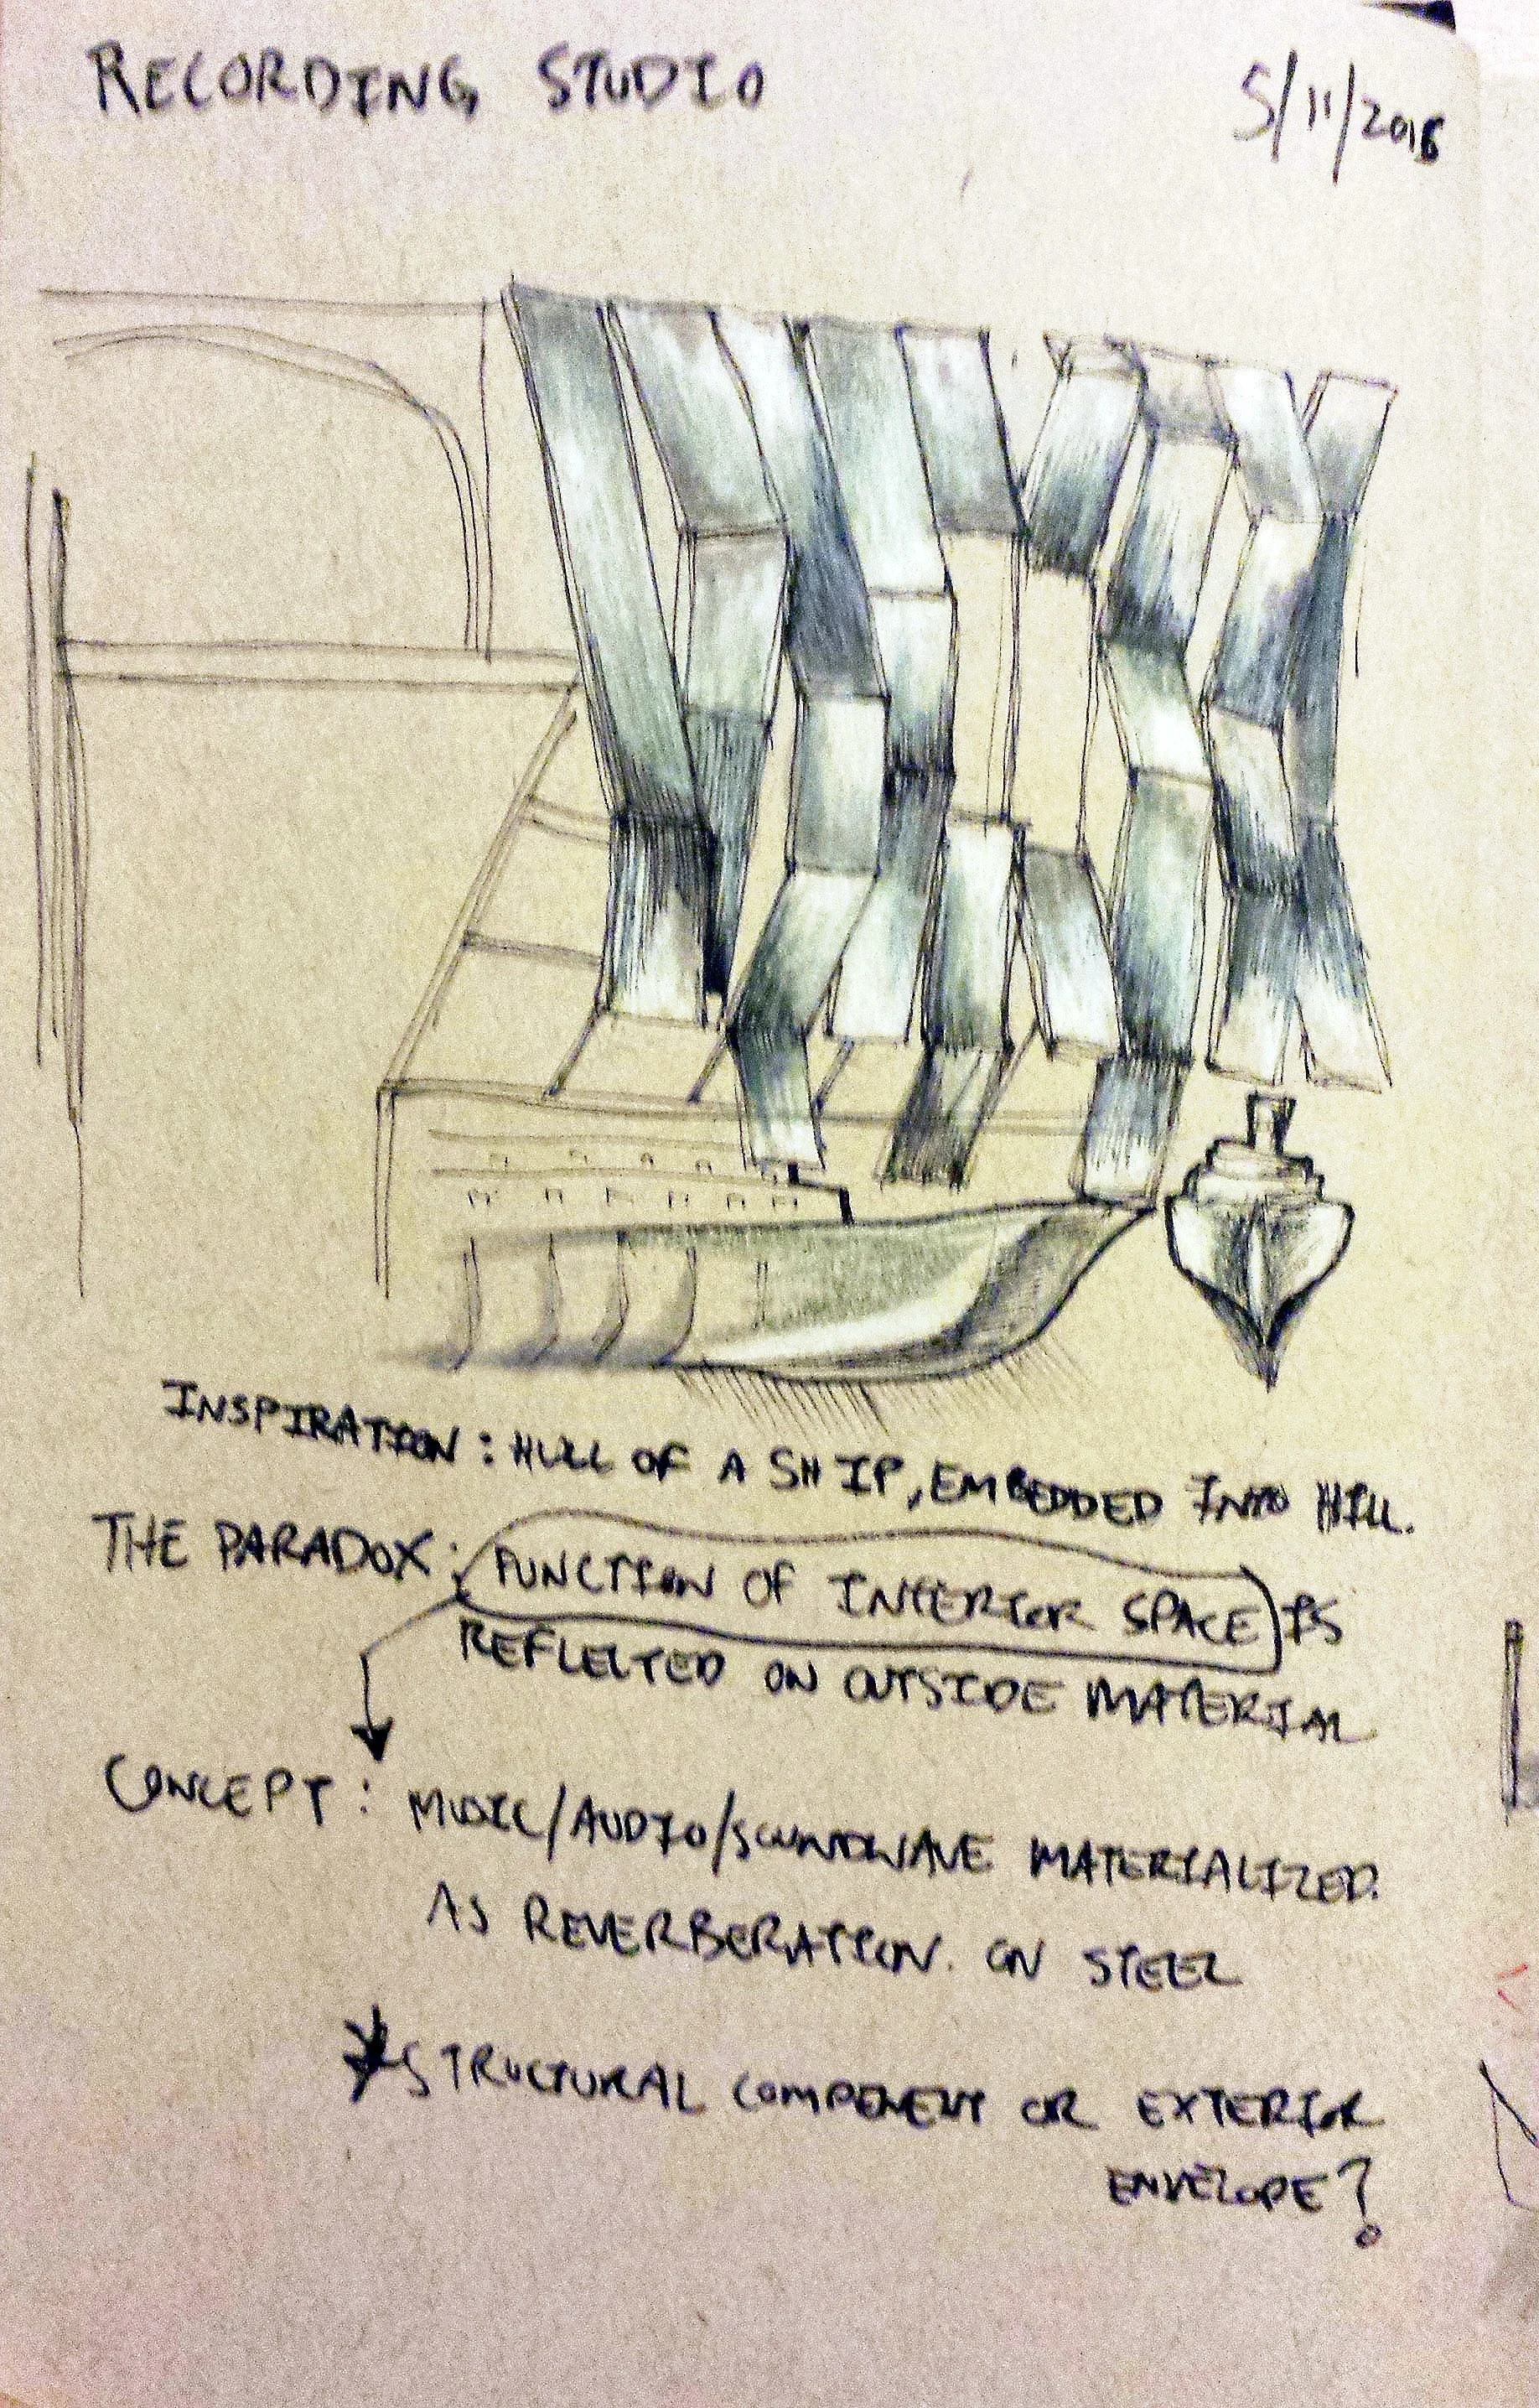 RECORDING STUDIO
5/11/2016
INSPIRATION: HULL OF A SHIP, EMBEDDED INTO HILL.
THE PARADOX: FUNCTION OF INTERIOR SPACE IS
REFLECTED ON OUTSIDE MATERIAL
CONCEPT: MUSIC/AUDIO/SOUNDWAVE MATERIALIZED.
AS REVERBERATION. ON STEEL
*STRUCTURAL COMPENENT OR EXTERIOR
ENVELOPE?